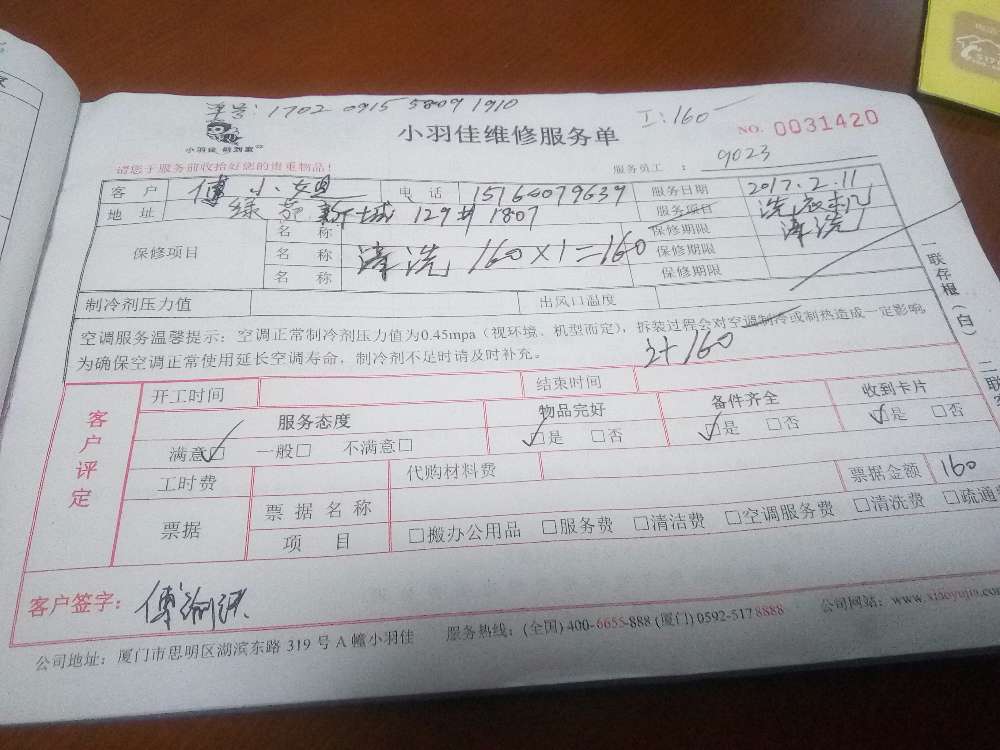 单号:1702 0915 5809 1910
小羽佳维修服务单
工:160
NO. 0031420
请您于服务前收拾好您的贵重物品!
服务员工 : 9023
客户 傅小姐 电话 15766079639 服务日期 2017.2.11
地址 绿苑新城 129# 1807 服务项目 洗衣机清洗
保修项目 名称 保修期限
名称 清洗 160×1=160 保修期限
名称 保修期限
制冷剂压力值 出风口温度
空调服务温馨提示:空调正常制冷剂压力值为0.45mpa(视环境、机型而定),拆装过程会对空调制冷或制热造成一定影响
为确保空调正常使用延长空调寿命,制冷剂不足时请及时补充。
计160
一联存根(白)
客户评定
开工时间 结束时间
服务态度 物品完好 备件齐全 收到卡片
满意□ 一般□ 不满意□ □是 □否 □是 □否 □是 □否
工时费 代购材料费 票据金额 160
票据 票据名称
项目 □搬办公用品 □服务费 □清洁费 □空调服务费 □清洗费 □疏通
客户签字:
公司地址:厦门市思明区湖滨东路 319 号 A 幢小羽佳 服务热线:(全国) 400-6655-888 (厦门) 0592-5178888 公司网站:www.xiaoyujia.com